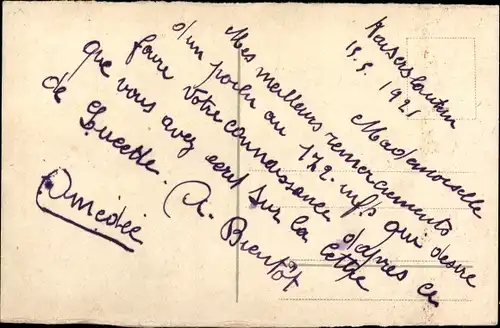 Kaiserslautern
15.3.1921
Mademoiselle
Mes meilleurs remerciements
d'un poilu au 172. inf qui desire
faire votre connaissance d'apres ce
que vous avez ecrit sur la lettre
de Lucette. A. Bientôt
Amédée